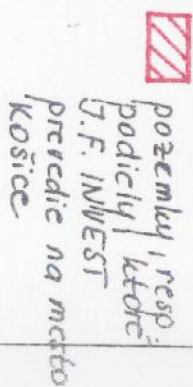 pozemky, resp.
podiely, ktoré
J.F. INVEST
prevedie na mesto
Košice